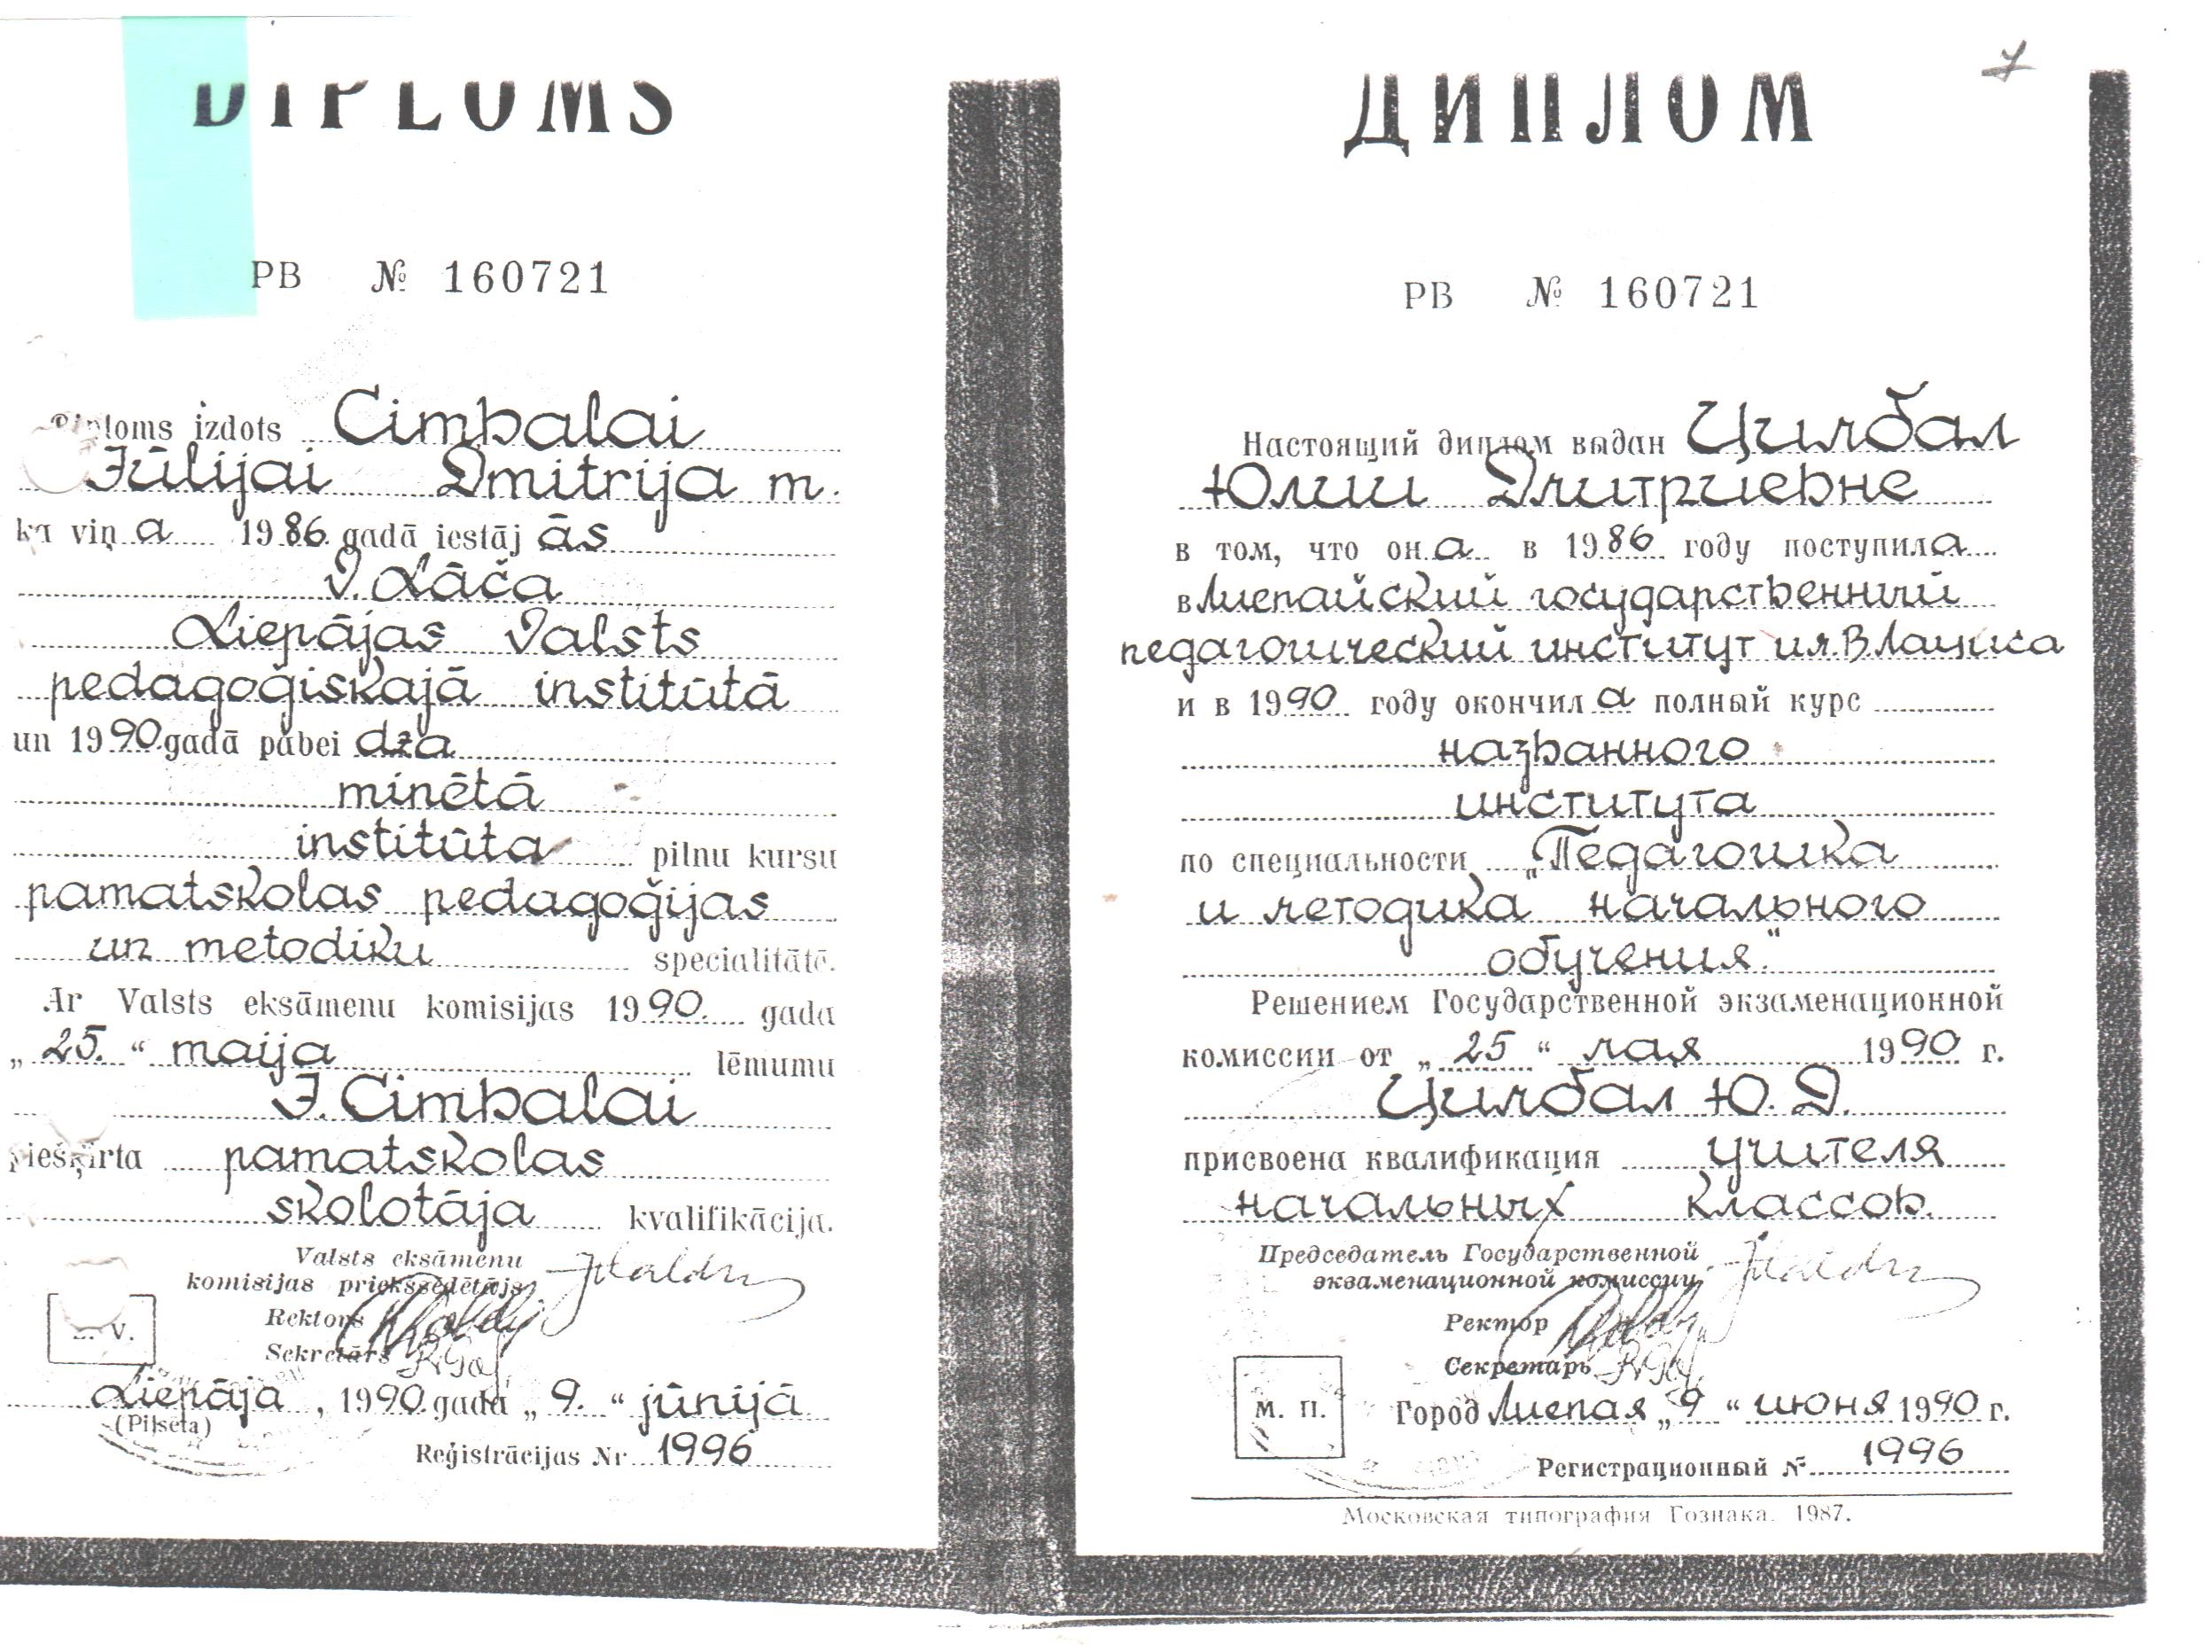 DIPLOMS
PB № 160721
Diploms izdots Cimbalai
Jūlijai Dmitrija m.
ka viņa 1986. gadā iestājās
V. Lāča
Liepājas Valsts
pedagoģiskajā institūtā
un 1990. gadā pabeidza
minētā
institūta pilnu kursu
pamatskolas pedagoģijas
un metodiku specialitātē.
Ar Valsts eksāmenu komisijas 1990. gada
„25.“ maija lēmumu
J. Cimbalai
piešķirta pamatskolas
skolotāja kvalifikācija.
Valsts eksāmenu
komisijas priekšsēdētājs
Rektors
Z. V.
Sekretārs
Liepāja, 1990. gada „9.“ jūnijā
(Pilsēta)
Reģistrācijas Nr 1996
7
ДИПЛОМ
РВ № 160721
Настоящий диплом выдан Цимбал
Юлии Дмитриевне
в том, что она в 1986 году поступила
в Лиепайский государственный
педагогический институт им. В Лациса
и в 1990 году окончила полный курс
названного
института
по специальности „Педагогика
и методика“ начального
обучения.“
Решением Государственной экзаменационной
комиссии от „25“ мая 1990 г.
Цимбал Ю. Д.
присвоена квалификация учителя
начальных классов.
Председатель Государственной
экзаменационной комиссии
Ректор
Секретарь
М. П.
Город Лиепая „9“ июня 1990 г.
Регистрационный № 1996
Московская типография Гознака. 1987.